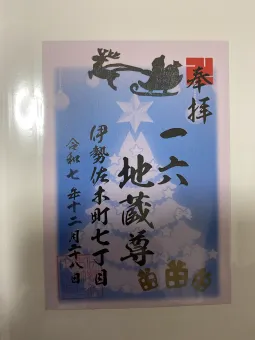 奉拝
一六
地蔵尊
伊勢佐木町七丁目
令和七年十二月二八日